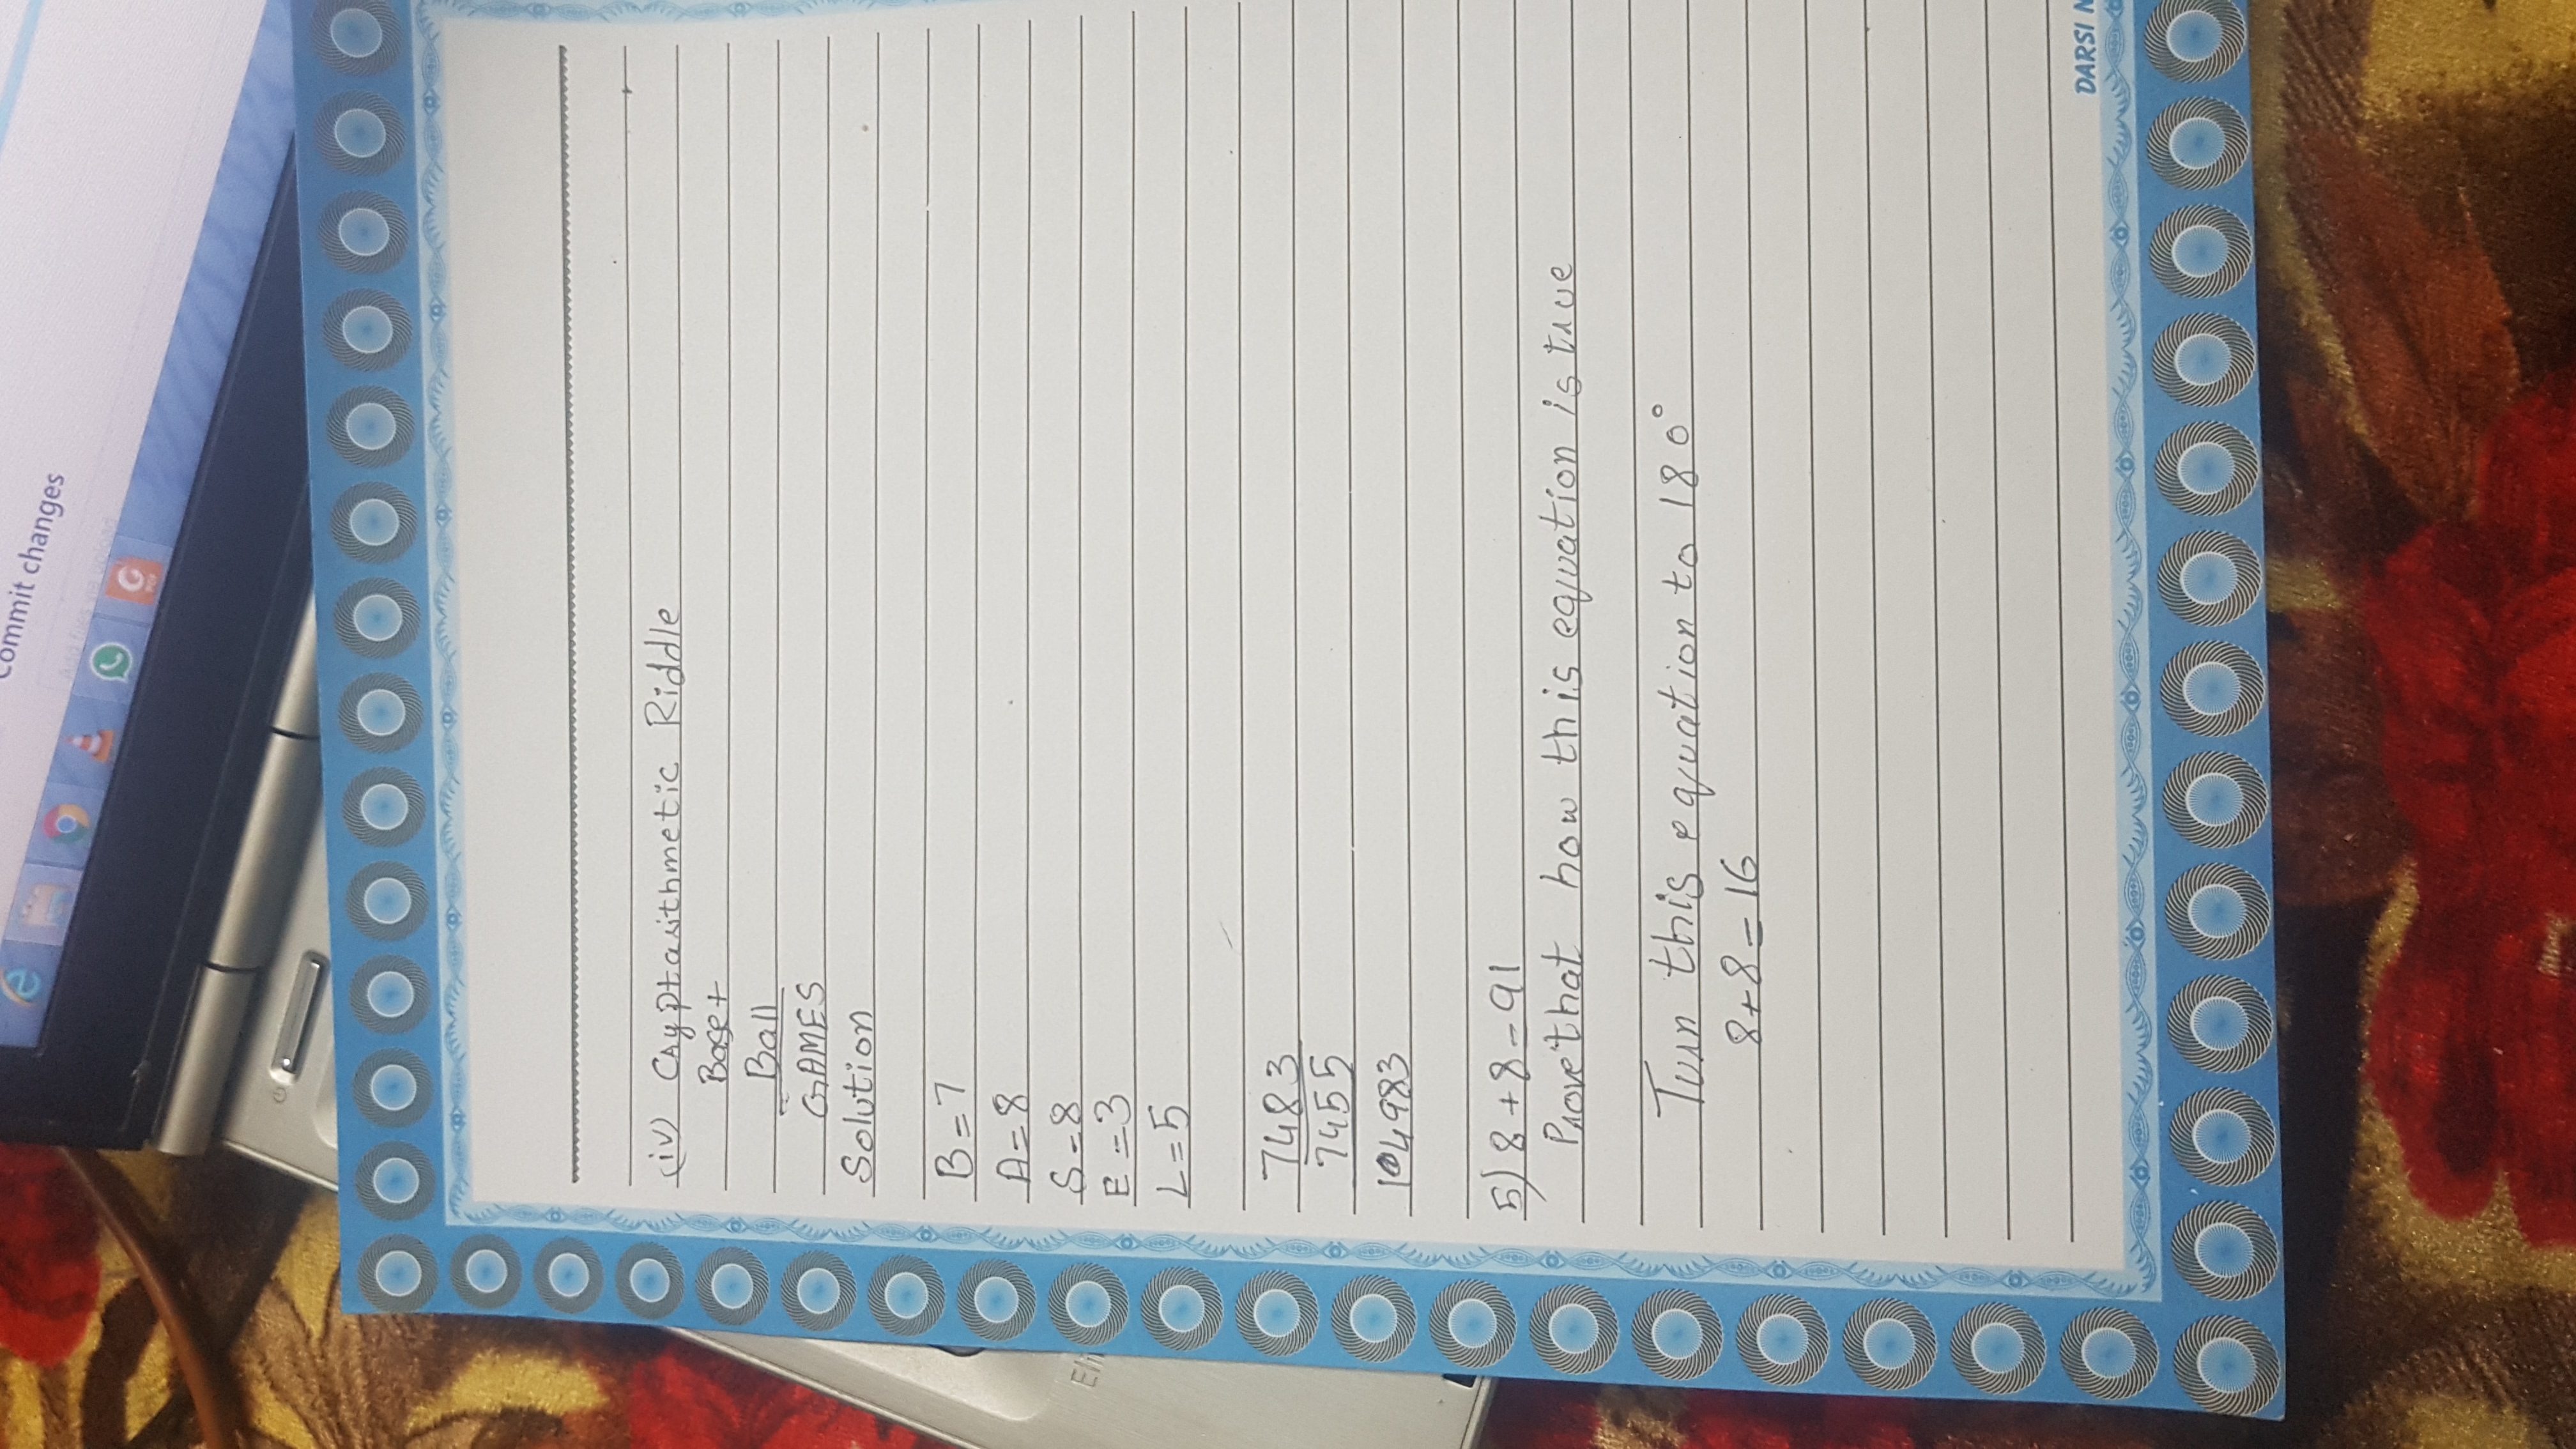 Commit changes
(iv) Cryptarithmetic Riddle
Base+
Ball
GAMES
Solution
B=7
A=8
S=8
E=3
L=5
7483
7455
104983
5) 8+8=91
Prove that how this equation is true
Turn this equation to 180°
8+8=16
DARSI